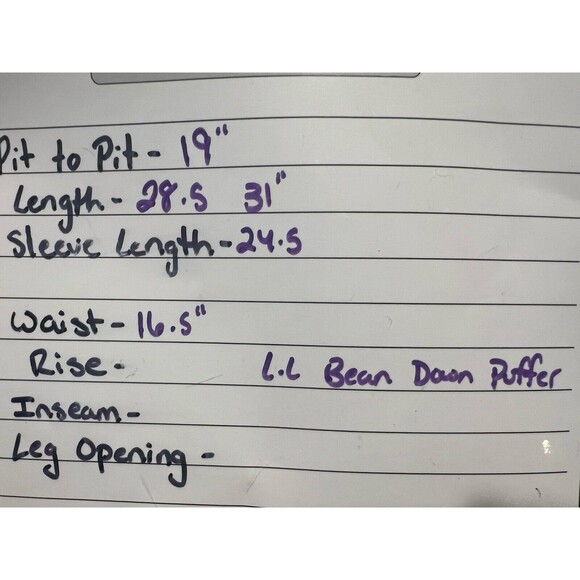 Pit to Pit - 19"
Length - 28.5 31"
Sleeve Length - 24.5
Waist - 16.5"
Rise - L.L Bean Down Puffer
Inseam -
Leg Opening -